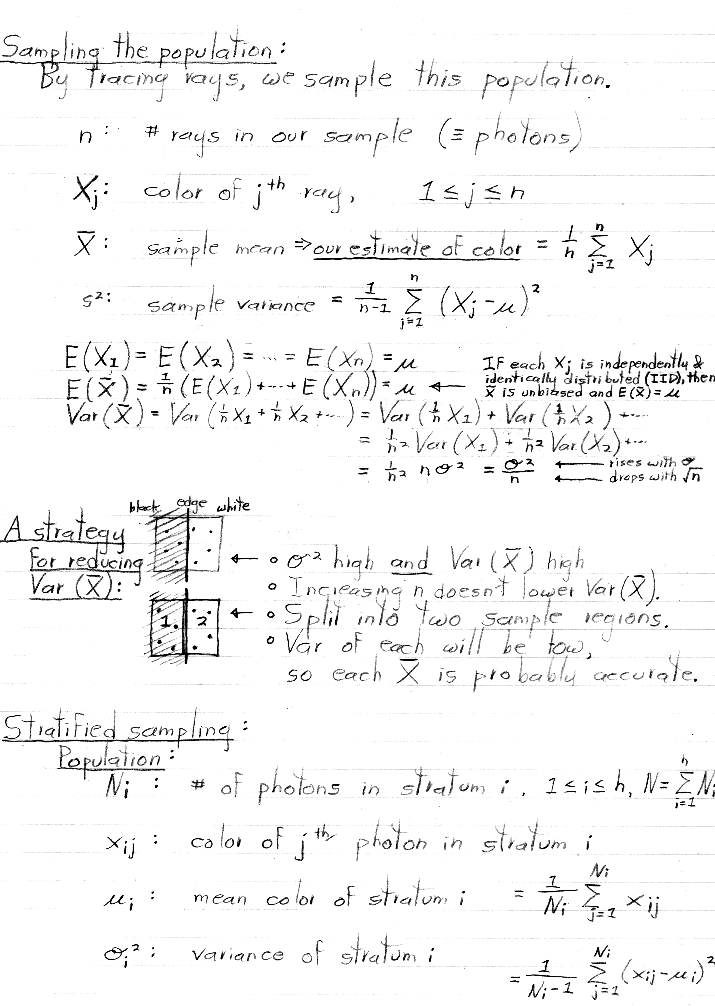 Sampling the population:
By tracing rays, we sample this population.
n: # rays in our sample (≡ photons)
Xj: color of jth ray, 1 ≤ j ≤ n
X̄: sample mean ⇒ our estimate of color = 1/n Σ_{j=1}^{n} Xj
s²: sample variance = 1/(n-1) Σ_{j=1}^{n} (Xj - μ)²
E(X1) = E(X2) = ... = E(Xn) = μ
E(X̄) = 1/n (E(X1) + ... + E(Xn)) = μ ←
IF each Xj is independently &
identically distributed (IID), then
X̄ is unbiased and E(X̄) = μ
Var(X̄) = Var(1/n X1 + 1/n X2 + ...) = Var(1/n X1) + Var(1/n X2) + ...
= 1/n² Var(X1) + 1/n² Var(X2) + ...
= 1/n² nσ² = σ²/n ← rises with σ
← drops with √n
black edge white
A strategy
for reducing
Var(X̄):
← o σ² high and Var(X̄) high
o Increasing n doesn't lower Var(X̄).
1 2
← o Split into two sample regions.
o Var of each will be low,
so each X̄ is probably accurate.
Stratified sampling:
Population:
Ni: # of photons in stratum i. 1 ≤ i ≤ h, N = Σ_{i=1}^{h} Ni
xij: color of jth photon in stratum i
μi: mean color of stratum i = 1/Ni Σ_{j=1}^{Ni} xij
σi²: variance of stratum i
= 1/(Ni-1) Σ_{j=1}^{Ni} (xij - μi)²